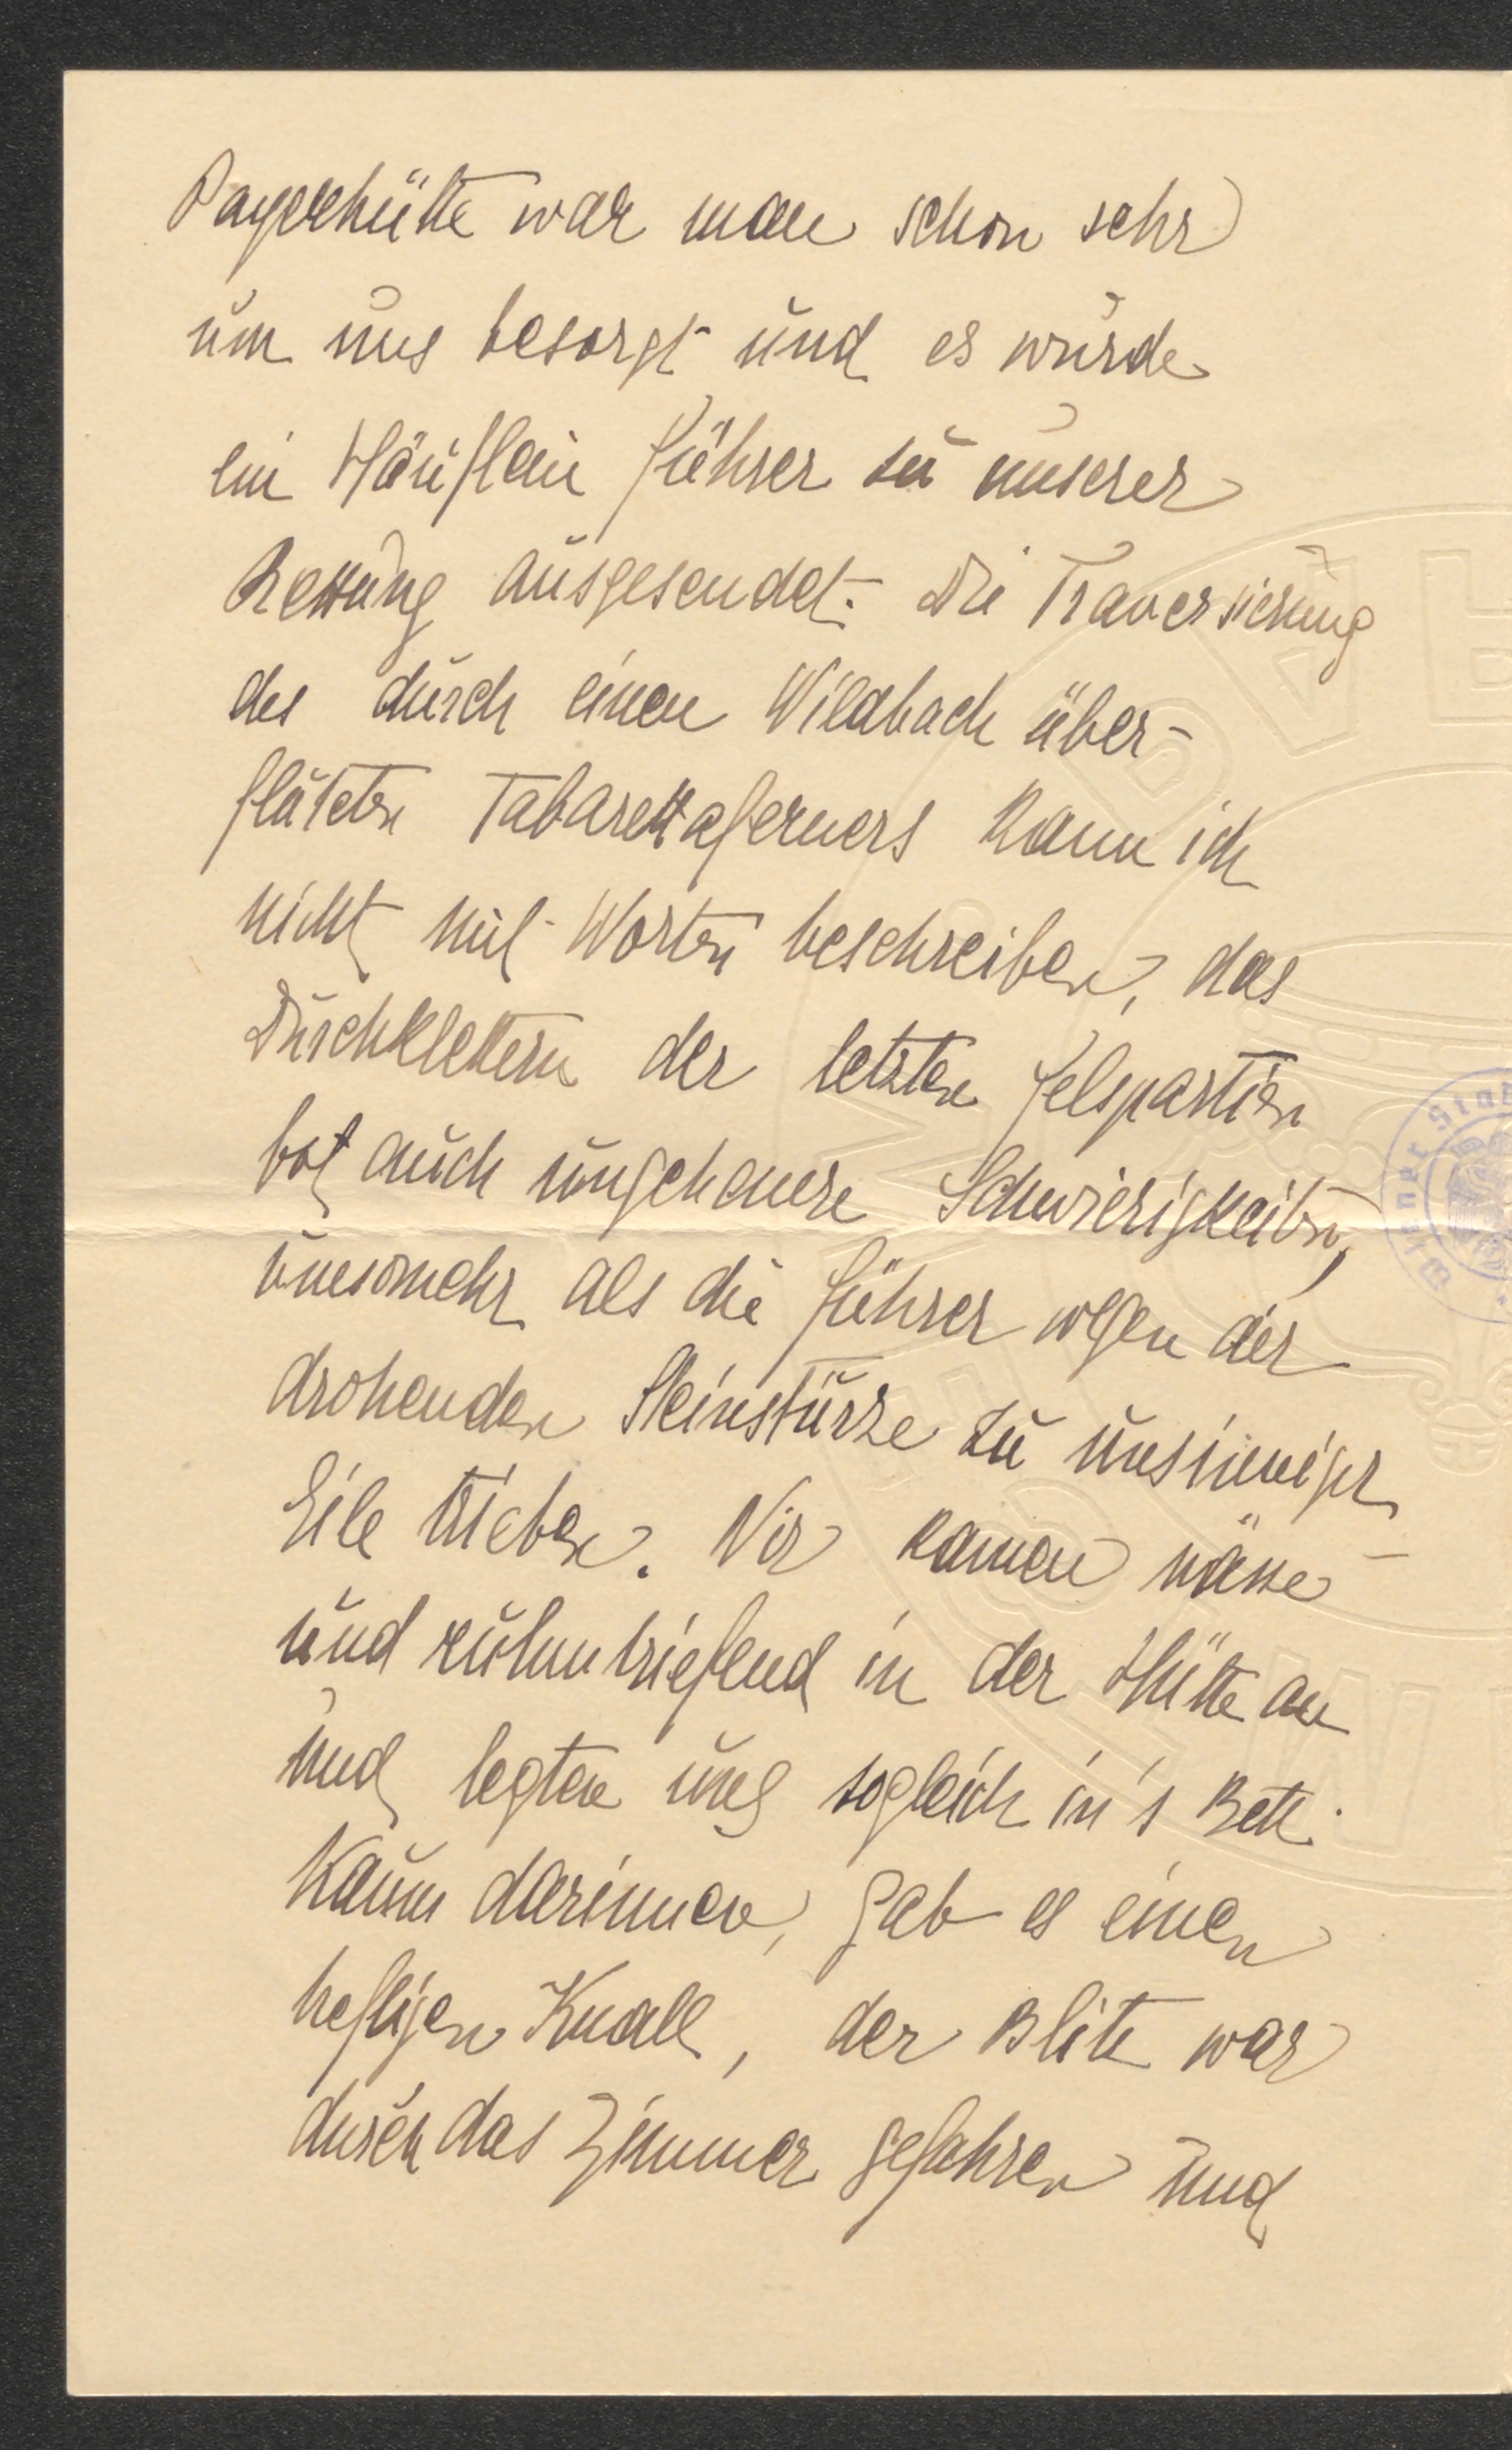 Payerhütte war man schon sehr
um uns besorgt und es wurde
ein Häuflein Führer zu unserer
Rettung ausgesendet. Die Traversierung
des durch einen Wildbach über-
fluteten Tabarettaferners kann ich
nicht mit Worten beschreiben, das
Durchklettern der letzten Felspartien
bot auch ungeheuere Schwierigkeiten,
umsomehr als die Führer wegen der
drohenden Steinstürze zu unsinniger
Eile trieben. Wir kamen nässe-
und ruhmtriefend in der Hütte an
und legten uns sogleich in's Bett.
Kaum darinnen, gab es einen
heftigen Knall, der Blitz war
durch das Zimmer gefahren und
Wiener Stad